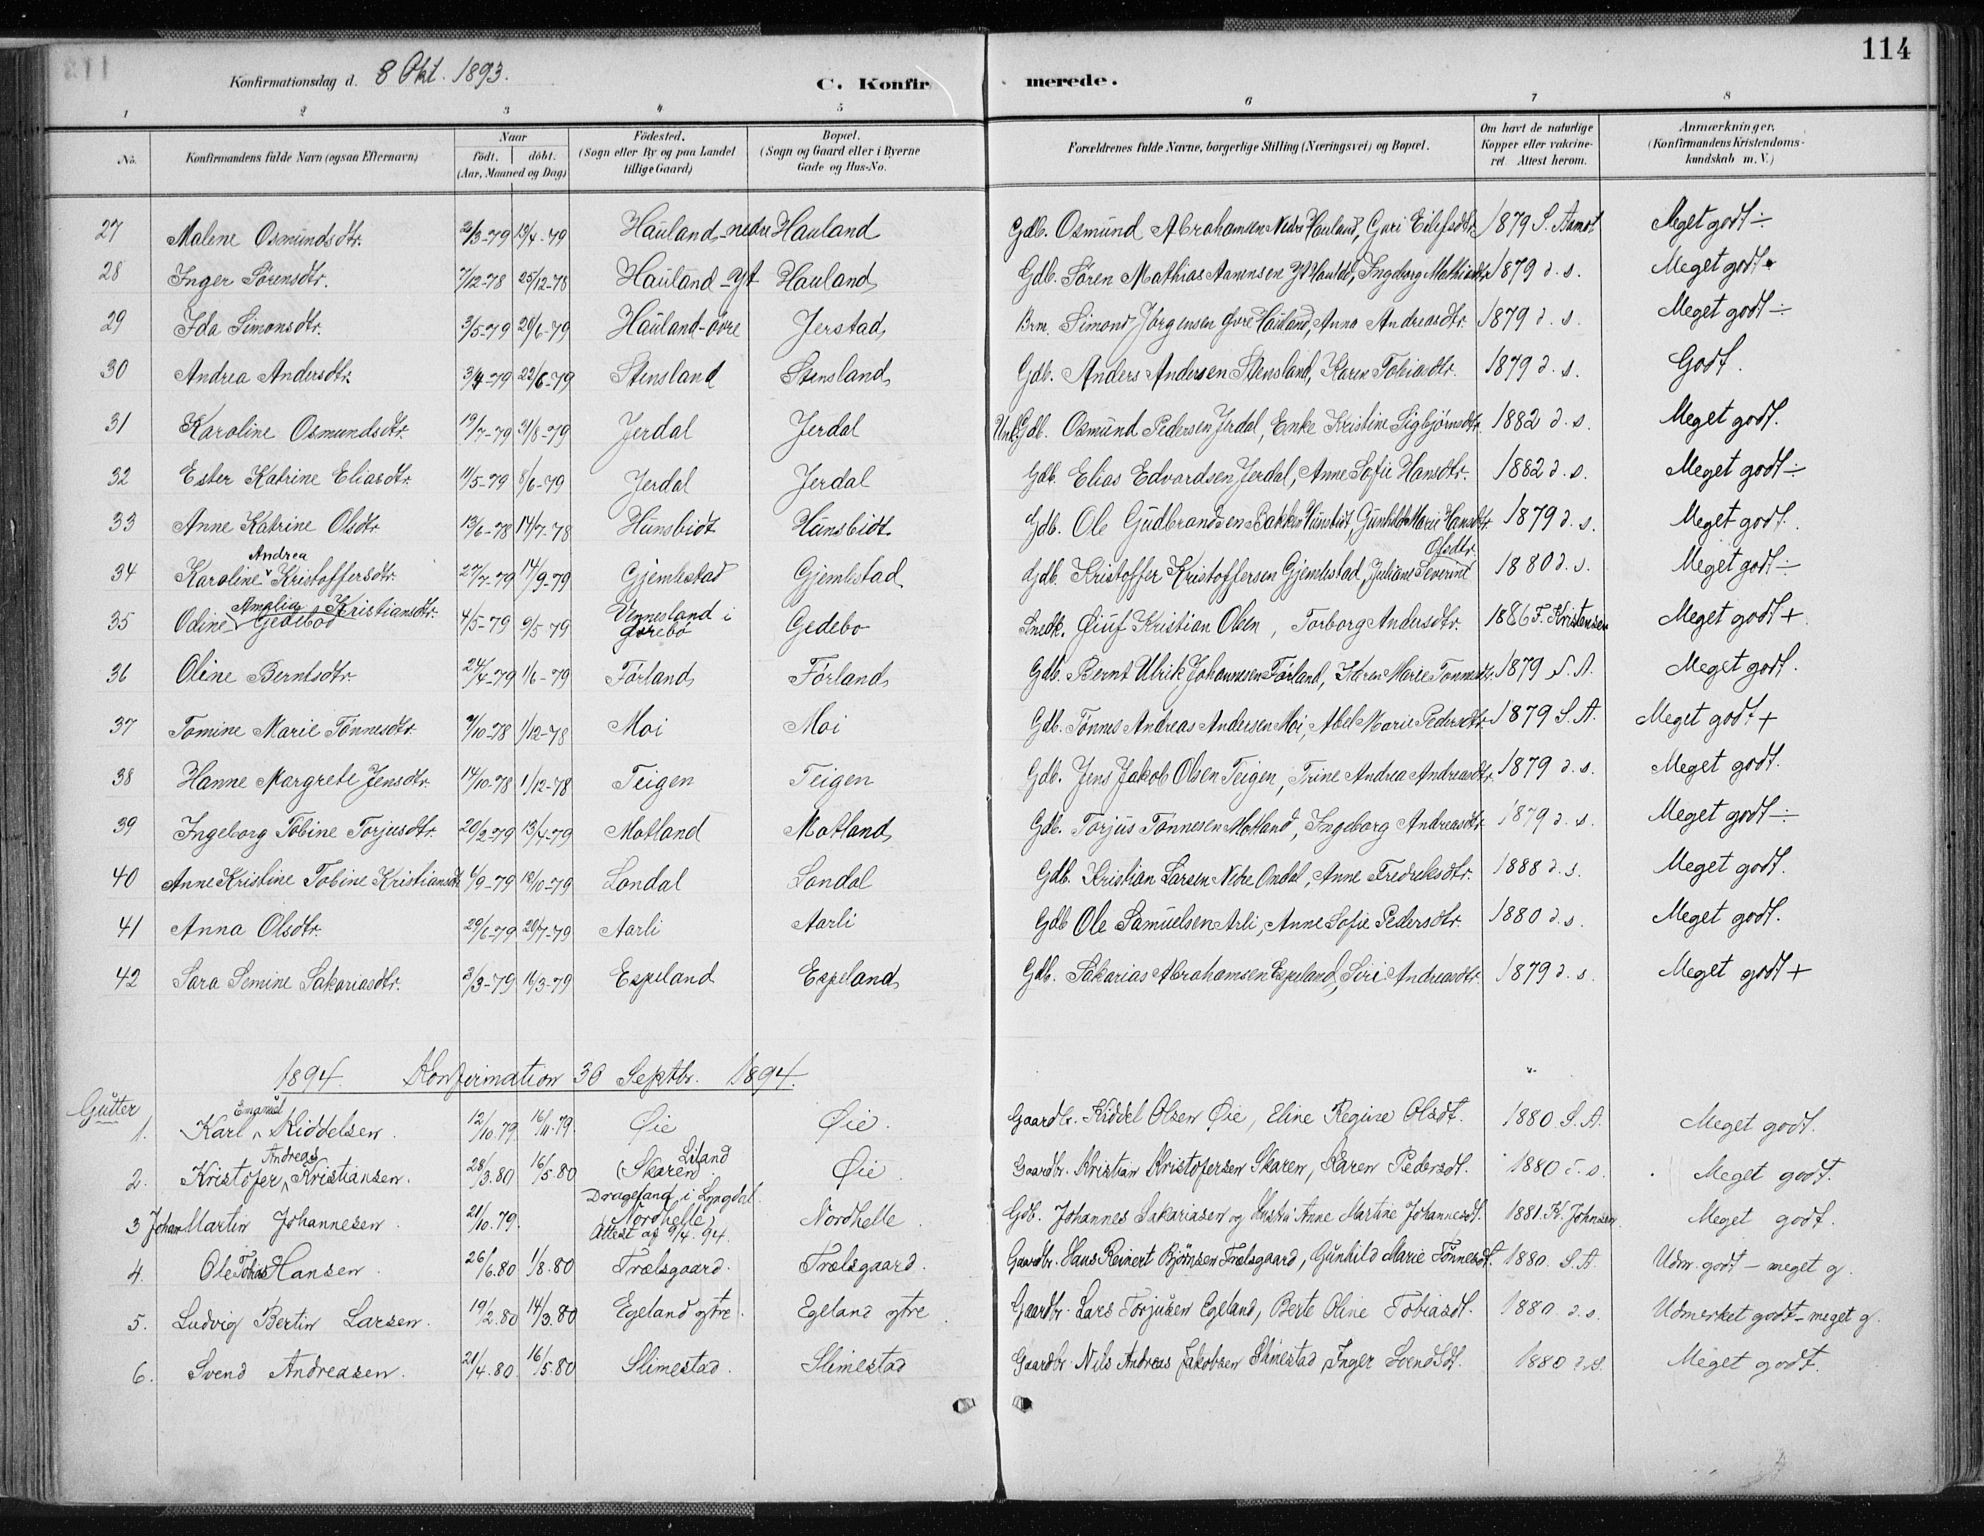 114
Konfirmationsdag d. 8 Okt. 1893.
C. Konfirmerede.
1 2 3 4 5 6 7 8
No. Konfirmandens fulde Navn (ogsaa Efternavn) Naar født. døbt. (Aar, Maaned og Dag) Fødested. (Sogn eller By og paa Landet tillige Gaard) Bopæl. (Sogn og Gaard eller i Byerne Gade og Hus-No. Forældrenes fulde Navne, borgerlige Stilling (Næringsvei) og Bopæl. Om havt de naturlige Kopper eller vakcineret. Attest herom. Anmærkninger. (Konfirmandens Kristendomskundskab m. V.)
27 Malene Osmundsdtr. 2/3-79 13/4-79 Hauland nedre Hauland Gdb. Osmund Abrahamsen Nedre Hauland, Guri Eilefsdtr. 1879 S. Aamot Meget godt ÷
28 Inger Sørensdtr. 7/12-78 25/12-78 Hauland-yt Hauland Gdb. Søren Mathias Aanensen Yt Hauld, Ingeborg Mathisdtr 1879 d. s. Meget godt
29 Ida Simonsdtr. 3/5-79 26/6-79 Hauland-øvre Jerstad Brm. Simond Jørgensen øvre Hauland, Anna Andreasdtr. 1879 d. s. Meget godt ÷
30 Andrea Andersdtr. 3/4-79 22/6-79 Stensland Stensland Gdb. Anders Andersen Stensland, Karen Tobiasdtr. 1879 d. s. Godt.
31 Karoline Osmundsdtr. 19/7-79 31/8-79 Jerdal Jerdal Gdb. Osmund Pedersen Jerdal, Enke Kristine Sigbjørnsdtr. 1882 d. s. Meget godt.
32 Ester Katrine Eliasdtr. 11/5-79 8/6-79 Jerdal Jerdal Gdb. Elias Edvardsen Jerdal, Anne Sofie Hansdtr. 1882 d. s. Meget godt ÷
33 Anne Katrine Olsdtr. 13/6-78 14/7-78 Hunsbidt Hunsbidt Gdb. Ole Gudbrandsen Bakken Hunsbidt, Gunhild Marie Hansdtr 1879 d. s. Meget godt.
34 Karoline Andrea Kristoffersdtr. 27/7-79 14/9-79 Gjemlestad Gjemlestad Gdb. Kristoffer Kristoffersen Gjemlestad, Juliane Severine Olsdtr. 1880 d. s. Meget godt ÷
35 Odine Amalia Gedebod Kristiansdtr. 4/5-79 9/5-79 Vennesland i Gyrebo Gedebo Snedk. Kristian Olsen, Torborg Andersdtr. 1886 F. Kristensen Meget godt +
36 Oline Berntsdtr. 24/4-79 1/6-79 Førland Førland Gdb. Bernt Ulrik Johannesen Førland, Karen Marie Tønnesdtr. 1879 S. A. Meget godt.
37 Tomine Marie Tønnesdtr. 9/10-78 1/12-78 Moi Moi Gdb. Tønnes Andreas Andersen Moi, Abel Marie Pedersdtr. 1879 S. A. Meget godt +
38 Hanne Margrete Jensdtr. 14/10-78 1/12-78 Teigen Teigen Gdb. Jens Jakob Olsen Teigen, Trine Andrea Andreasdtr. 1879 d. s. Meget godt.
39 Ingeborg Tobine Torjusdtr. 20/2-79 13/4-79 Motland Motland Gdb. Torjus Tønnesen Motland, Ingeborg Andreasdtr. 1879 d. s. Meget godt ÷
40 Anne Kristine Tobine Kristiansdtr. 6/9-79 19/10-79 Londal Londal Gdb. Kristian Larsen Nedre Ondal, Anne Fredriksdtr. 1888 d. s. Meget godt.
41 Anna Olsdtr. 29/6-79 20/7-79 Aarli Aarli Gdb Ole Samuelsen Arli, Anne Sofie Pedersdtr. 1880 d. s. Meget godt.
42 Sara Semine Sakariasdtr. 3/3-79 16/3-79 Espeland Espeland Gdb. Sakarias Abrahamsen Espeland, Siri Andreasdtr. 1879 d. s. Meget godt +
1894. Konfirmation 30 Septbr. 1894.
Gutter
1. Karl Emanuel Kiddelsen. 12/10.79 16/11.79. Øie Øie. Gaardbr. Kiddel Olsen Øie, Eline Regine Olsdt. 1880. S. A. Meget godt.
2. Kristofer Andreas Kristiansen. 28/3.80 16/5.80 (Skaren) Liland Øie. Gaardbr. Kristian Kristofersen Skaren, Karen Pedersdt. 1880 d. s. Meget godt.
3 Johan Martin Johannesen. 21/10.79. Drageland i Lyngdal. Nordhelle, Attest af 9/4. 94. Nordhelle. Gdb. Johannes Sakariasen og Hustru Anne Martine Johannesdt. 1881. K. Johnsen Meget godt.
4. Ole Tobias Hansen. 26/6.80 1/8.80 Trælsgaard. Trælsgaard. Gaardbr. Hans Reinert Bjørnsen Trælsgaard, Gunhild Marie Tønnesdt. 1880. S. A. Udm. godt – meget g.
5. Ludvig Bertin Larsen. 19/2.80 14/3.80 Egeland ytre. Egeland ytre. Gaardbr. Lars Torjusen Egeland, Berte Oline Tobiasdt. 1880. d. s. Udmerket godt – meget g.
6. Svend Andreasen. 21/4.80. 16/5.80 Slimestad. Slimestad Gaardbr. Nils Andreas Jakobsen Slimestad, Inger Svendsdt. 1880 d. s. Meget godt.